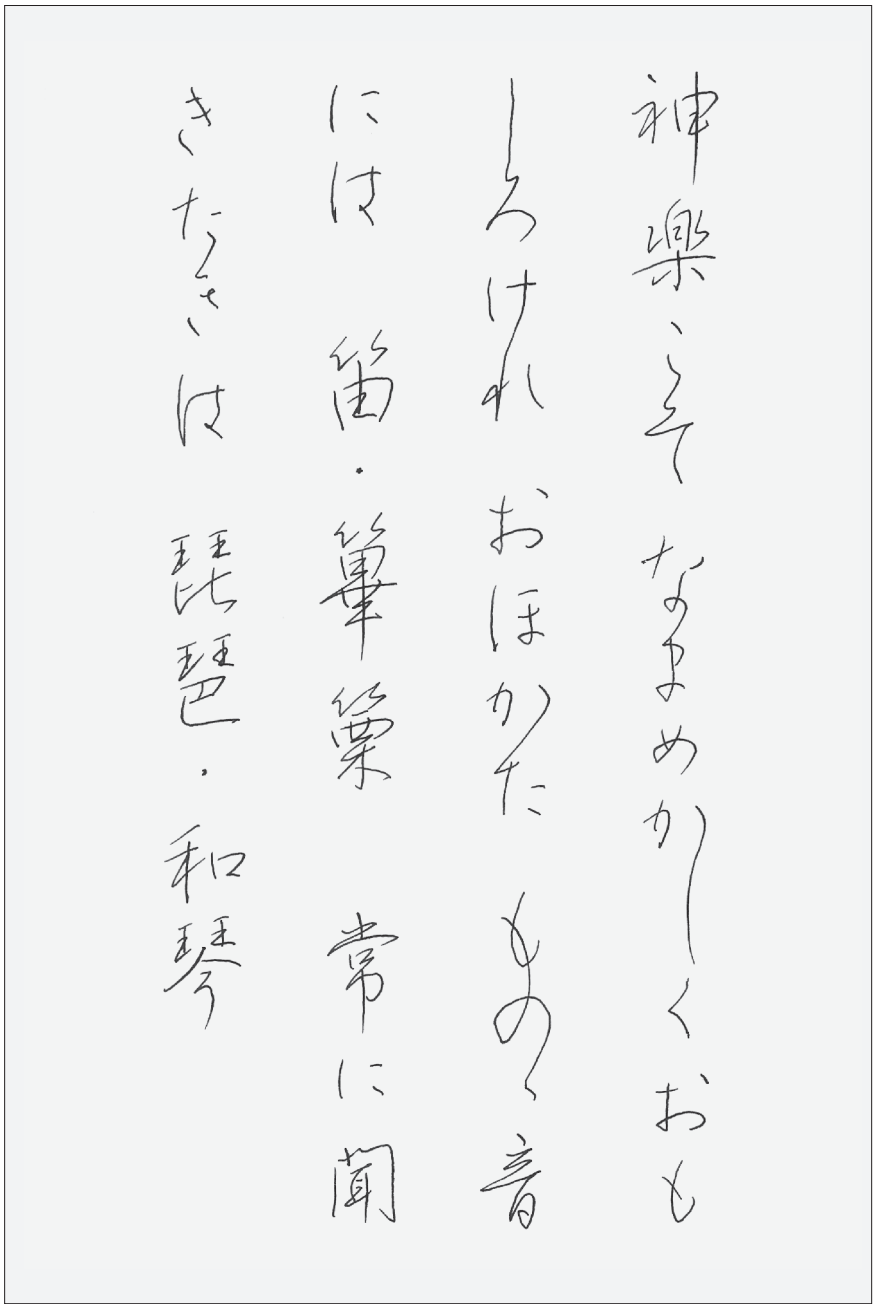 神楽こそ なまめかしくおも
しろけれ おほかた ものゝ音
には 笛・篳篥 常に聞
きたきは 琵琶・和琴